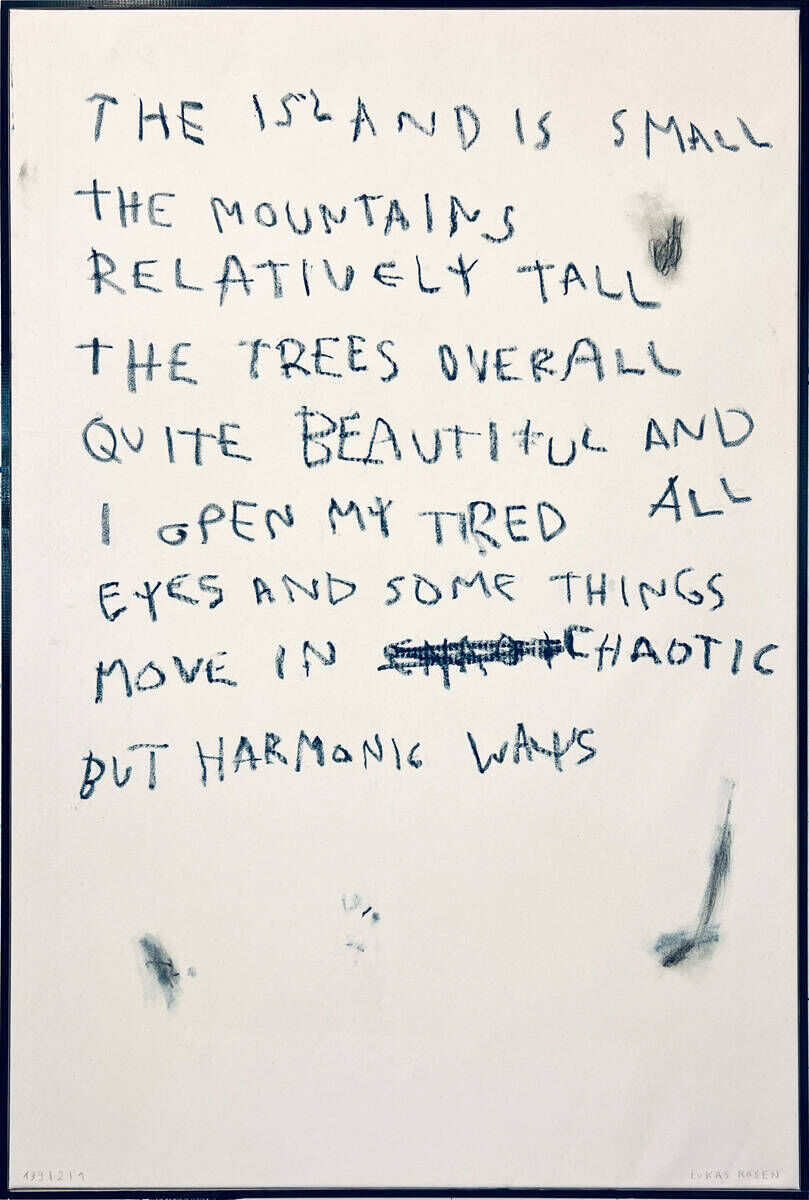 THE ISLAND IS SMALL
THE MOUNTAINS
RELATIVELY TALL
THE TREES OVERALL
QUITE BEAUTIFUL AND
I OPEN MY TIRED ALL
EYES AND SOME THINGS
MOVE IN CHAOTIC
BUT HARMONIC WAYS
LUKAS ROSEN